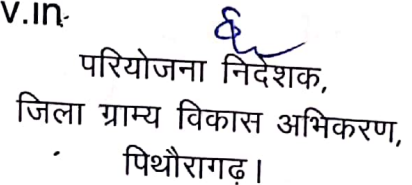 v.in
परियोजना निदेशक,
जिला ग्राम्य विकास अभिकरण,
पिथौरागढ़।